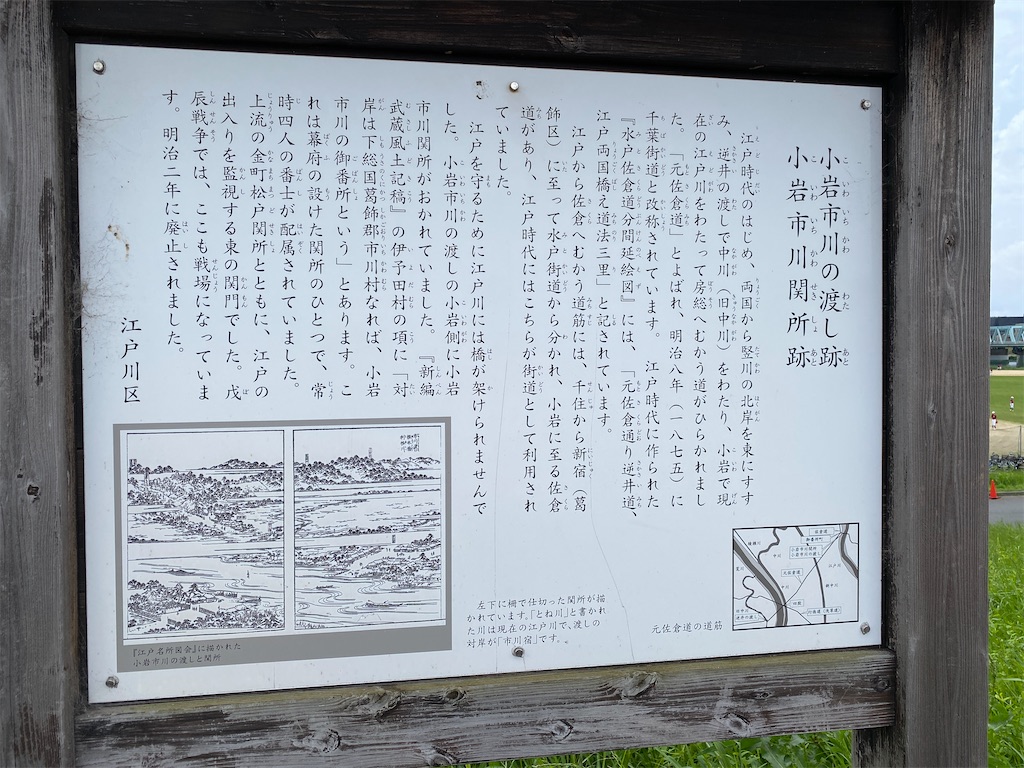 小岩市川の渡し跡
小岩市川関所跡
江戸時代のはじめ、両国から竪川の北岸を東にすす
み、逆井の渡しで中川（旧中川）をわたり、小岩で現
在の江戸川をわたって房総へむかう道がひらかれまし
た。「元佐倉道」とよばれ、明治八年（一八七五）に
千葉街道と改称されています。江戸時代に作られた
『水戸佐倉道分間延絵図』には、「元佐倉通り逆井道、
江戸両国橋え道法三里」と記されています。
江戸から佐倉へむかう道筋には、千住から新宿（葛
飾区）に至って水戸街道から分かれ、小岩に至る佐倉
道があり、江戸時代にはこちらが街道として利用され
ていました。
江戸を守るために江戸川には橋が架けられませんで
した。小岩市川の渡しの小岩側に小岩
市川関所がおかれていました。『新編
武蔵風土記稿』の伊予田村の項に「対
岸は下総国葛飾郡市川村なれば、小岩
市川の御番所という」とあります。こ
れは幕府の設けた関所のひとつで、常
時四人の番士が配属されていました。
上流の金町松戸関所とともに、江戸の
出入りを監視する東の関門でした。戊
辰戦争では、ここも戦場になっていま
す。明治二年に廃止されました。
江戸川区
『江戸名所図会』に描かれた
小岩市川の渡しと関所
左下に柵で仕切った関所が描
かれています。「とね川」と書かれ
た川は現在の江戸川で、渡しの
対岸が「市川宿」です。
元佐倉道の道筋